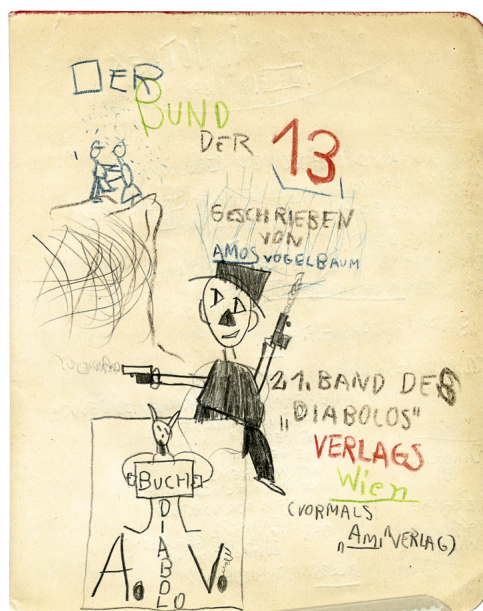 DER
BUND
DER 13
GESCHRIEBEN
VON
AMOS VOGELBAUM
21. BAND DES
„DIABOLOS"
VERLAGS
Wien
(VORMALS
„AMI" VERLAG)
BUCH
DIABOLO
A. V.